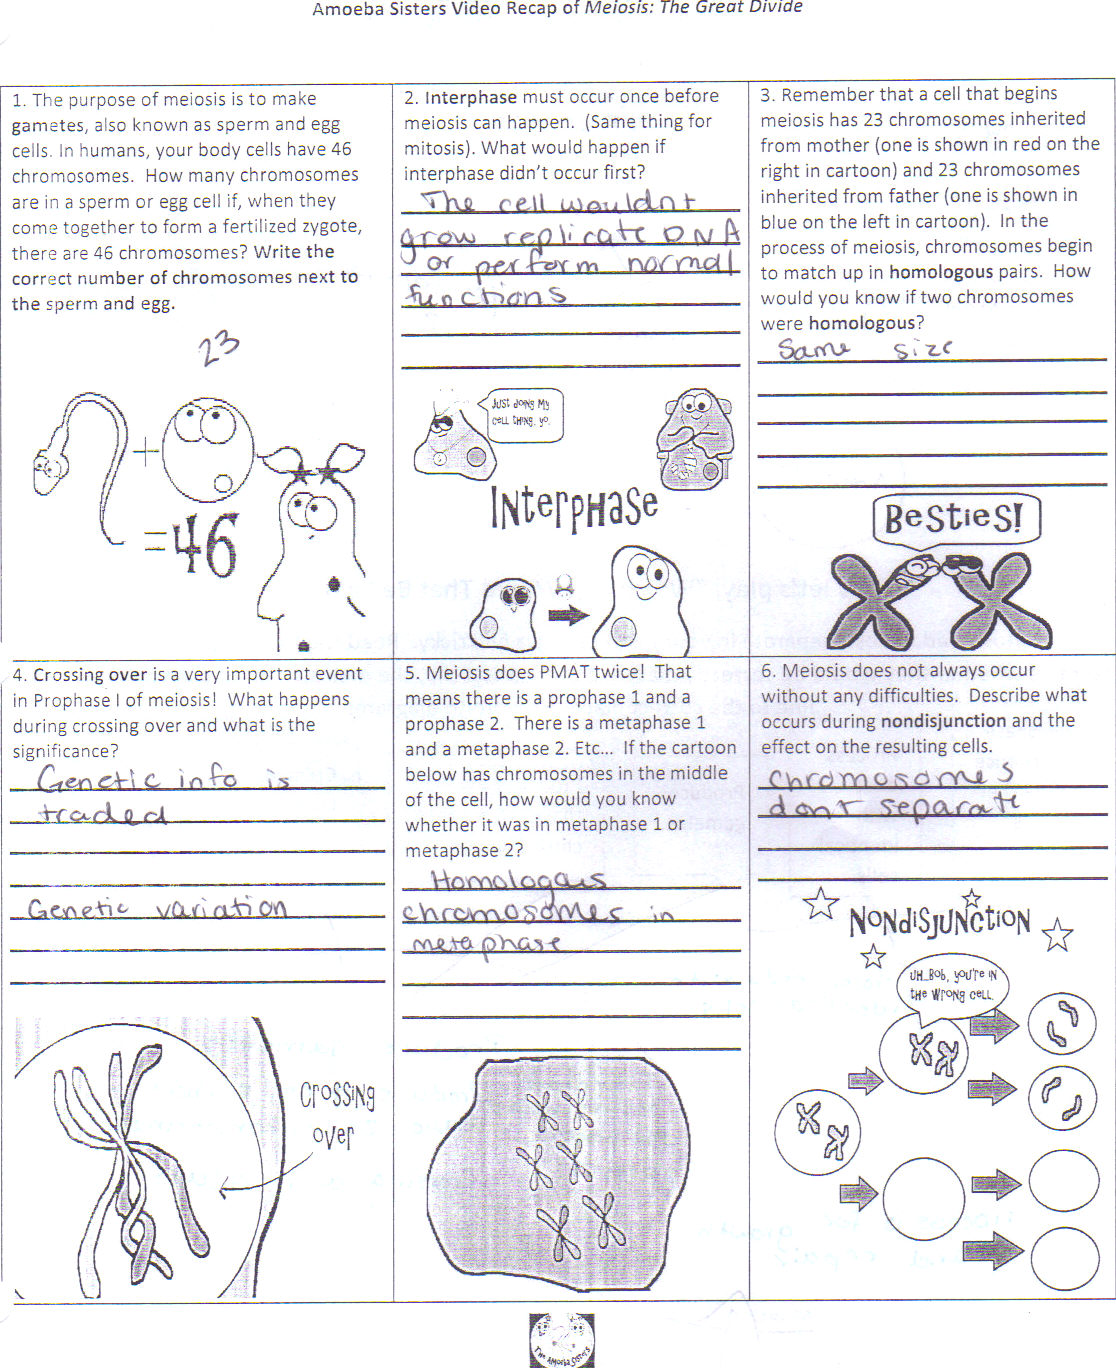 Amoeba Sisters Video Recap of Meiosis: The Great Divide
1. The purpose of meiosis is to make
gametes, also known as sperm and egg
cells. In humans, your body cells have 46
chromosomes. How many chromosomes
are in a sperm or egg cell if, when they
come together to form a fertilized zygote,
there are 46 chromosomes? Write the
correct number of chromosomes next to
the sperm and egg.
23
+
=46
2. Interphase must occur once before
meiosis can happen. (Same thing for
mitosis). What would happen if
interphase didn't occur first?
The cell wouldnt
grow replicate DNA
or perform normal
functions
Just doing my
cell thing, yo.
Interphase
3. Remember that a cell that begins
meiosis has 23 chromosomes inherited
from mother (one is shown in red on the
right in cartoon) and 23 chromosomes
inherited from father (one is shown in
blue on the left in cartoon). In the
process of meiosis, chromosomes begin
to match up in homologous pairs. How
would you know if two chromosomes
were homologous?
Same size
Besties!
4. Crossing over is a very important event
in Prophase I of meiosis! What happens
during crossing over and what is the
significance?
Genetic info is
traded
Genetic variation
Crossing
over
5. Meiosis does PMAT twice! That
means there is a prophase 1 and a
prophase 2. There is a metaphase 1
and a metaphase 2. Etc... If the cartoon
below has chromosomes in the middle
of the cell, how would you know
whether it was in metaphase 1 or
metaphase 2?
Homologous
chromosomes in
metaphase
6. Meiosis does not always occur
without any difficulties. Describe what
occurs during nondisjunction and the
effect on the resulting cells.
Chromosomes
dont separate
Nondisjunction
Uh..Bob, you're in
the wrong cell.
The Amoeba Sisters